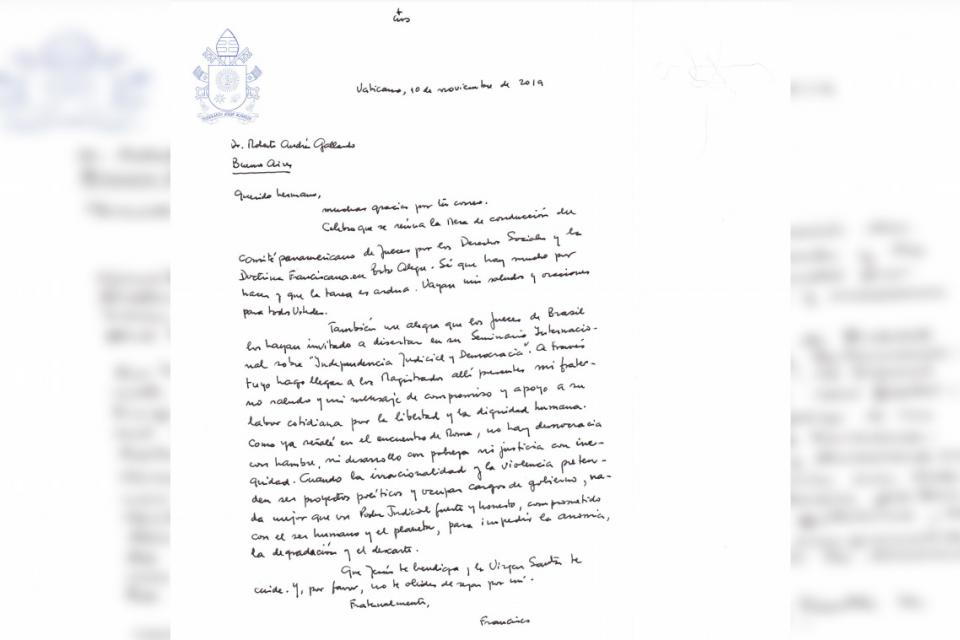 Vaticano, 10 de noviembre de 2019
Dr. Roberto Andrés Gallardo
Buenos Aires
Querido hermano,
muchas gracias por tu correo.
Celebro que se reúna la Mesa de conducción del
Comité panamericano de Jueces por los Derechos Sociales y la
Doctrina Franciscana en Porto Alegre. Sé que hay mucho por
hacer y que la tarea es ardua. Vayan mi saludo y oraciones
para todos Ustedes.
También me alegra que los Jueces de Brasil
los hayan invitado a disertar en su Seminario Internacio-
nal sobre "Independencia Judicial y Democracia". A través
tuyo hago llegar a los Magistrados allí presentes mi frater-
no saludo y mi mensaje de compromiso y apoyo a su
labor cotidiana por la libertad y la dignidad humana.
Como ya señalé en el encuentro de Roma, no hay democracia
con hambre, ni desarrollo con pobreza ni justicia con ine-
quidad. Cuando la irracionalidad y la violencia preten-
den ser proyectos políticos y ocupan cargos de gobierno, na-
da mejor que un Poder Judicial fuerte y honesto, comprometido
con el ser humano y el planeta, para impedir la anomia,
la degradación y el descarte.
Que Jesús te bendiga y la Virgen Santa te
cuide. Y, por favor, no te olvides de rezar por mí.
Fraternalmente,
Francisco